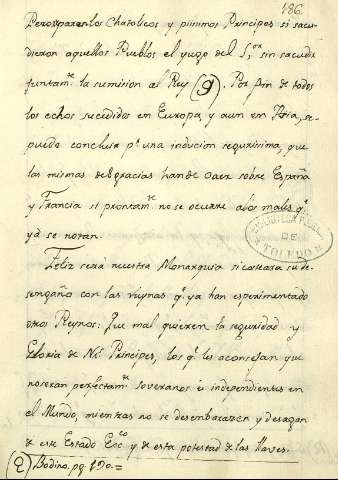 186
Pero reparen los Chatolicos y piisimos Principes si sacu-
dieron aquellos Pueblos el yugo del S.or sin sacudir
juntam.te la sumision al Rey (g). Por fin de todos
los echos sucedidos en Europa, y aun en Asia, se
puede concluir p.r una inducion segurisima, que
las mismas desgracias han de caer sobre España
y Francia si prontam.te no se ocurre a los males q.e
yà se notan.
Feliz serà nuestra Monarquia si costeara su de-
sengaño con las ruynas q.e ya han esperimentado
otros Reynos: Que mal quieren la seguridad y
Gloria de N.s Principes, los q.e les aconsejan que
no seran perfectam.te Soveranos è independientes en
el Mundo, mientras no se desembarazen y desagan
de este Estado Ecc.co y de esta potestad de las llaves.
Bodino. pg. 190.=
BIBLIOTECA
DE
TOLEDO